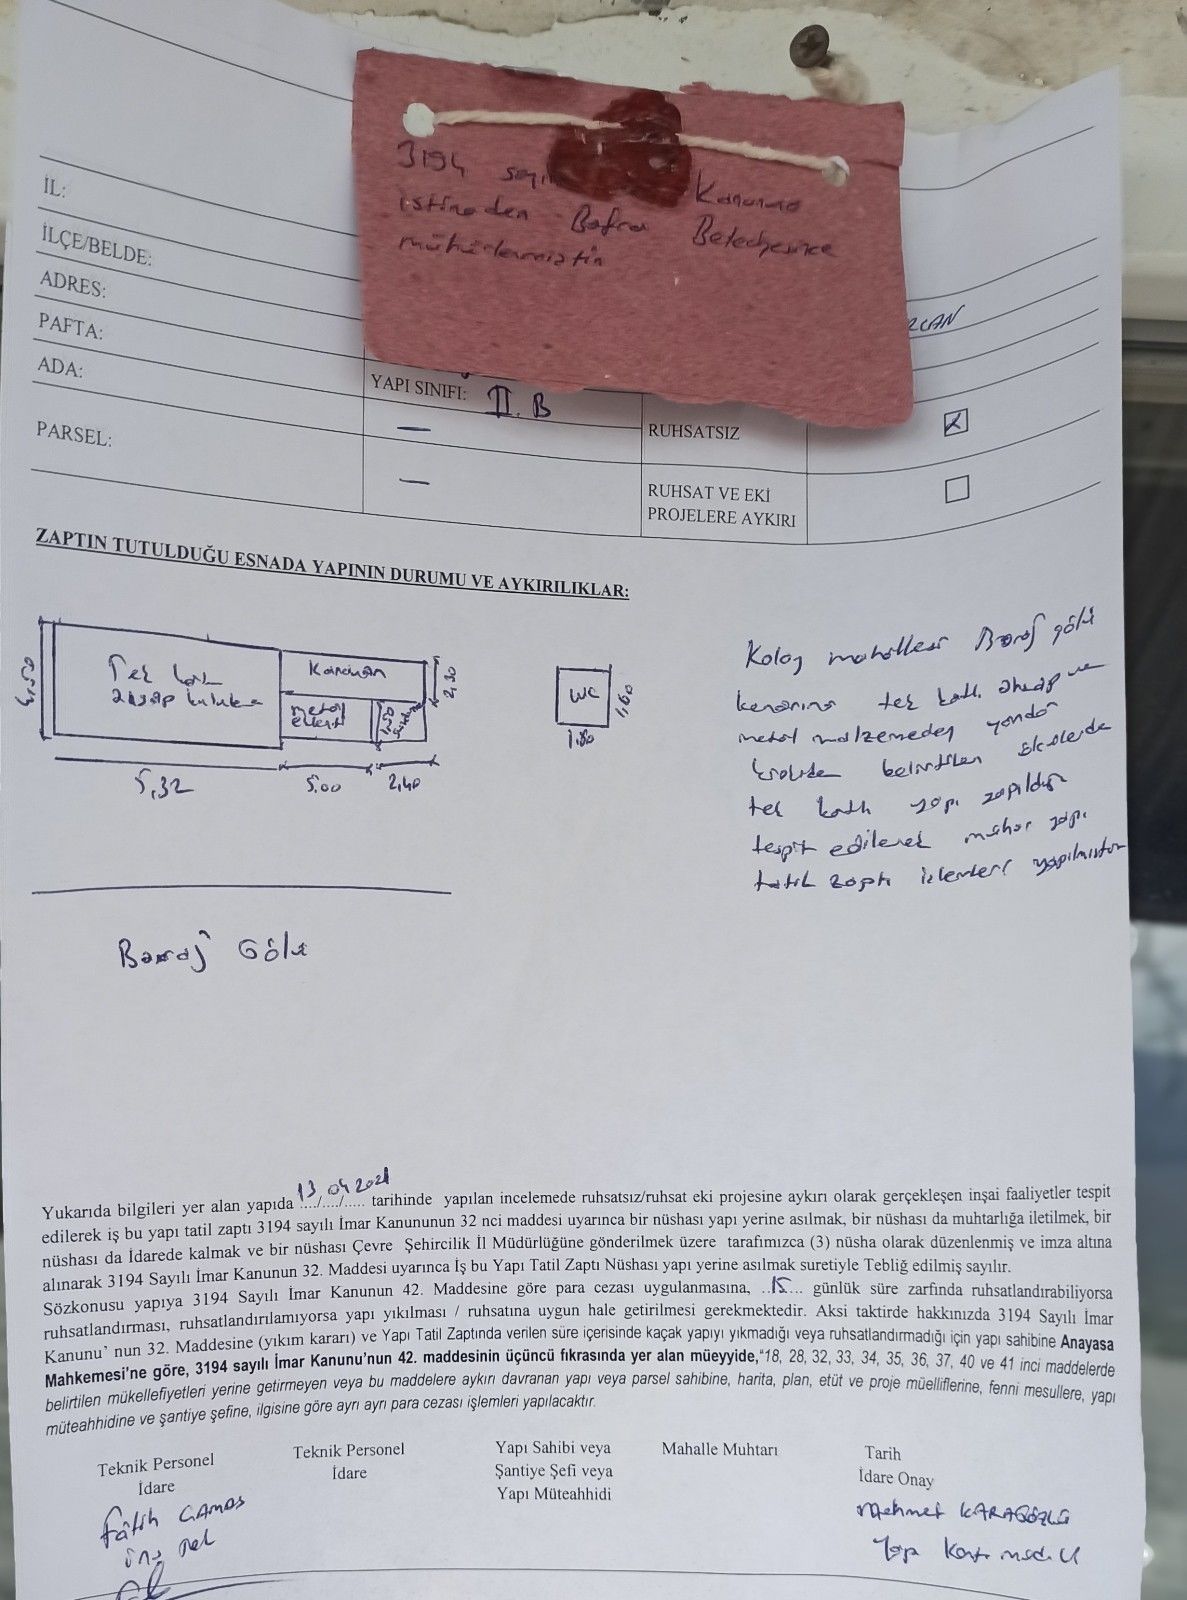 3194 sayılı Kanununa
istinaden Bafra Belediyesince
mühürlenmiştir
İL:
İLÇE/BELDE:
ADRES:
PAFTA:
ADA:
YAPI SINIFI: II. B
RUHSATSIZ
PARSEL:
RUHSAT VE EKİ
PROJELERE AYKIRI
ZAPTIN TUTULDUĞU ESNADA YAPININ DURUMU VE AYKIRILIKLAR:
Tek katlı
ahşap kulube
4,50
5,32
metal
5.00
1,50
2,40
2,30
WC
1,60
1,80
Kolay mahallesi Baraj gölü
kenarına tek katlı ahşap ve
metal malzemeden yandan
krokide belirtilen ölçülerde
tek katlı yapı yapıldığı
tespit edilerek mühür yapı
tatil zaptı işlemleri yapılmıştır
Baraj Gölü
Yukarıda bilgileri yer alan yapıda 13/04/2021 tarihinde yapılan incelemede ruhsatsız/ruhsat eki projesine aykırı olarak gerçekleşen inşai faaliyetler tespit
edilerek iş bu yapı tatil zaptı 3194 sayılı İmar Kanununun 32 nci maddesi uyarınca bir nüshası yapı yerine asılmak, bir nüshası da muhtarlığa iletilmek, bir
nüshası da İdarede kalmak ve bir nüshası Çevre Şehircilik İl Müdürlüğüne gönderilmek üzere tarafımızca (3) nüsha olarak düzenlenmiş ve imza altına
alınarak 3194 Sayılı İmar Kanunun 32. Maddesi uyarınca İş bu Yapı Tatil Zaptı Nüshası yapı yerine asılmak suretiyle Tebliğ edilmiş sayılır.
Sözkonusu yapıya 3194 Sayılı İmar Kanunun 42. Maddesine göre para cezası uygulanmasına, ..15.... günlük süre zarfında ruhsatlandırabiliyorsa
ruhsatlandırması, ruhsatlandırılamıyorsa yapı yıkılması / ruhsatına uygun hale getirilmesi gerekmektedir. Aksi taktirde hakkınızda 3194 Sayılı İmar
Kanunu' nun 32. Maddesine (yıkım kararı) ve Yapı Tatil Zaptında verilen süre içerisinde kaçak yapıyı yıkmadığı veya ruhsatlandırmadığı için yapı sahibine Anayasa
Mahkemesi'ne göre, 3194 sayılı İmar Kanunu'nun 42. maddesinin üçüncü fıkrasında yer alan müeyyide,"18, 28, 32, 33, 34, 35, 36, 37, 40 ve 41 inci maddelerde
belirtilen mükellefiyetleri yerine getirmeyen veya bu maddelere aykırı davranan yapı veya parsel sahibine, harita, plan, etüt ve proje müelliflerine, fenni mesullere, yapı
müteahhidine ve şantiye şefine, ilgisine göre ayrı ayrı para cezası işlemleri yapılacaktır.
Teknik Personel
İdare
Fatih
Teknik Personel
İdare
Yapı Sahibi veya
Şantiye Şefi veya
Yapı Müteahhidi
Mahalle Muhtarı
Tarih
İdare Onay
Mehmet KARAGÖZLÜ